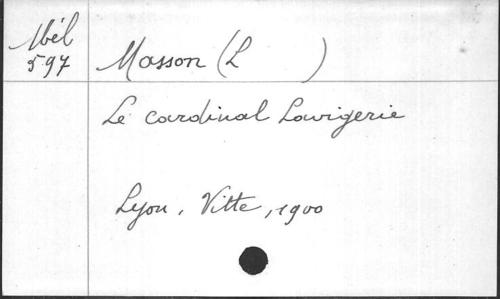 Mél
597
Masson (L )
Le cardinal Lavigerie
Lyon, Vitte, 1900